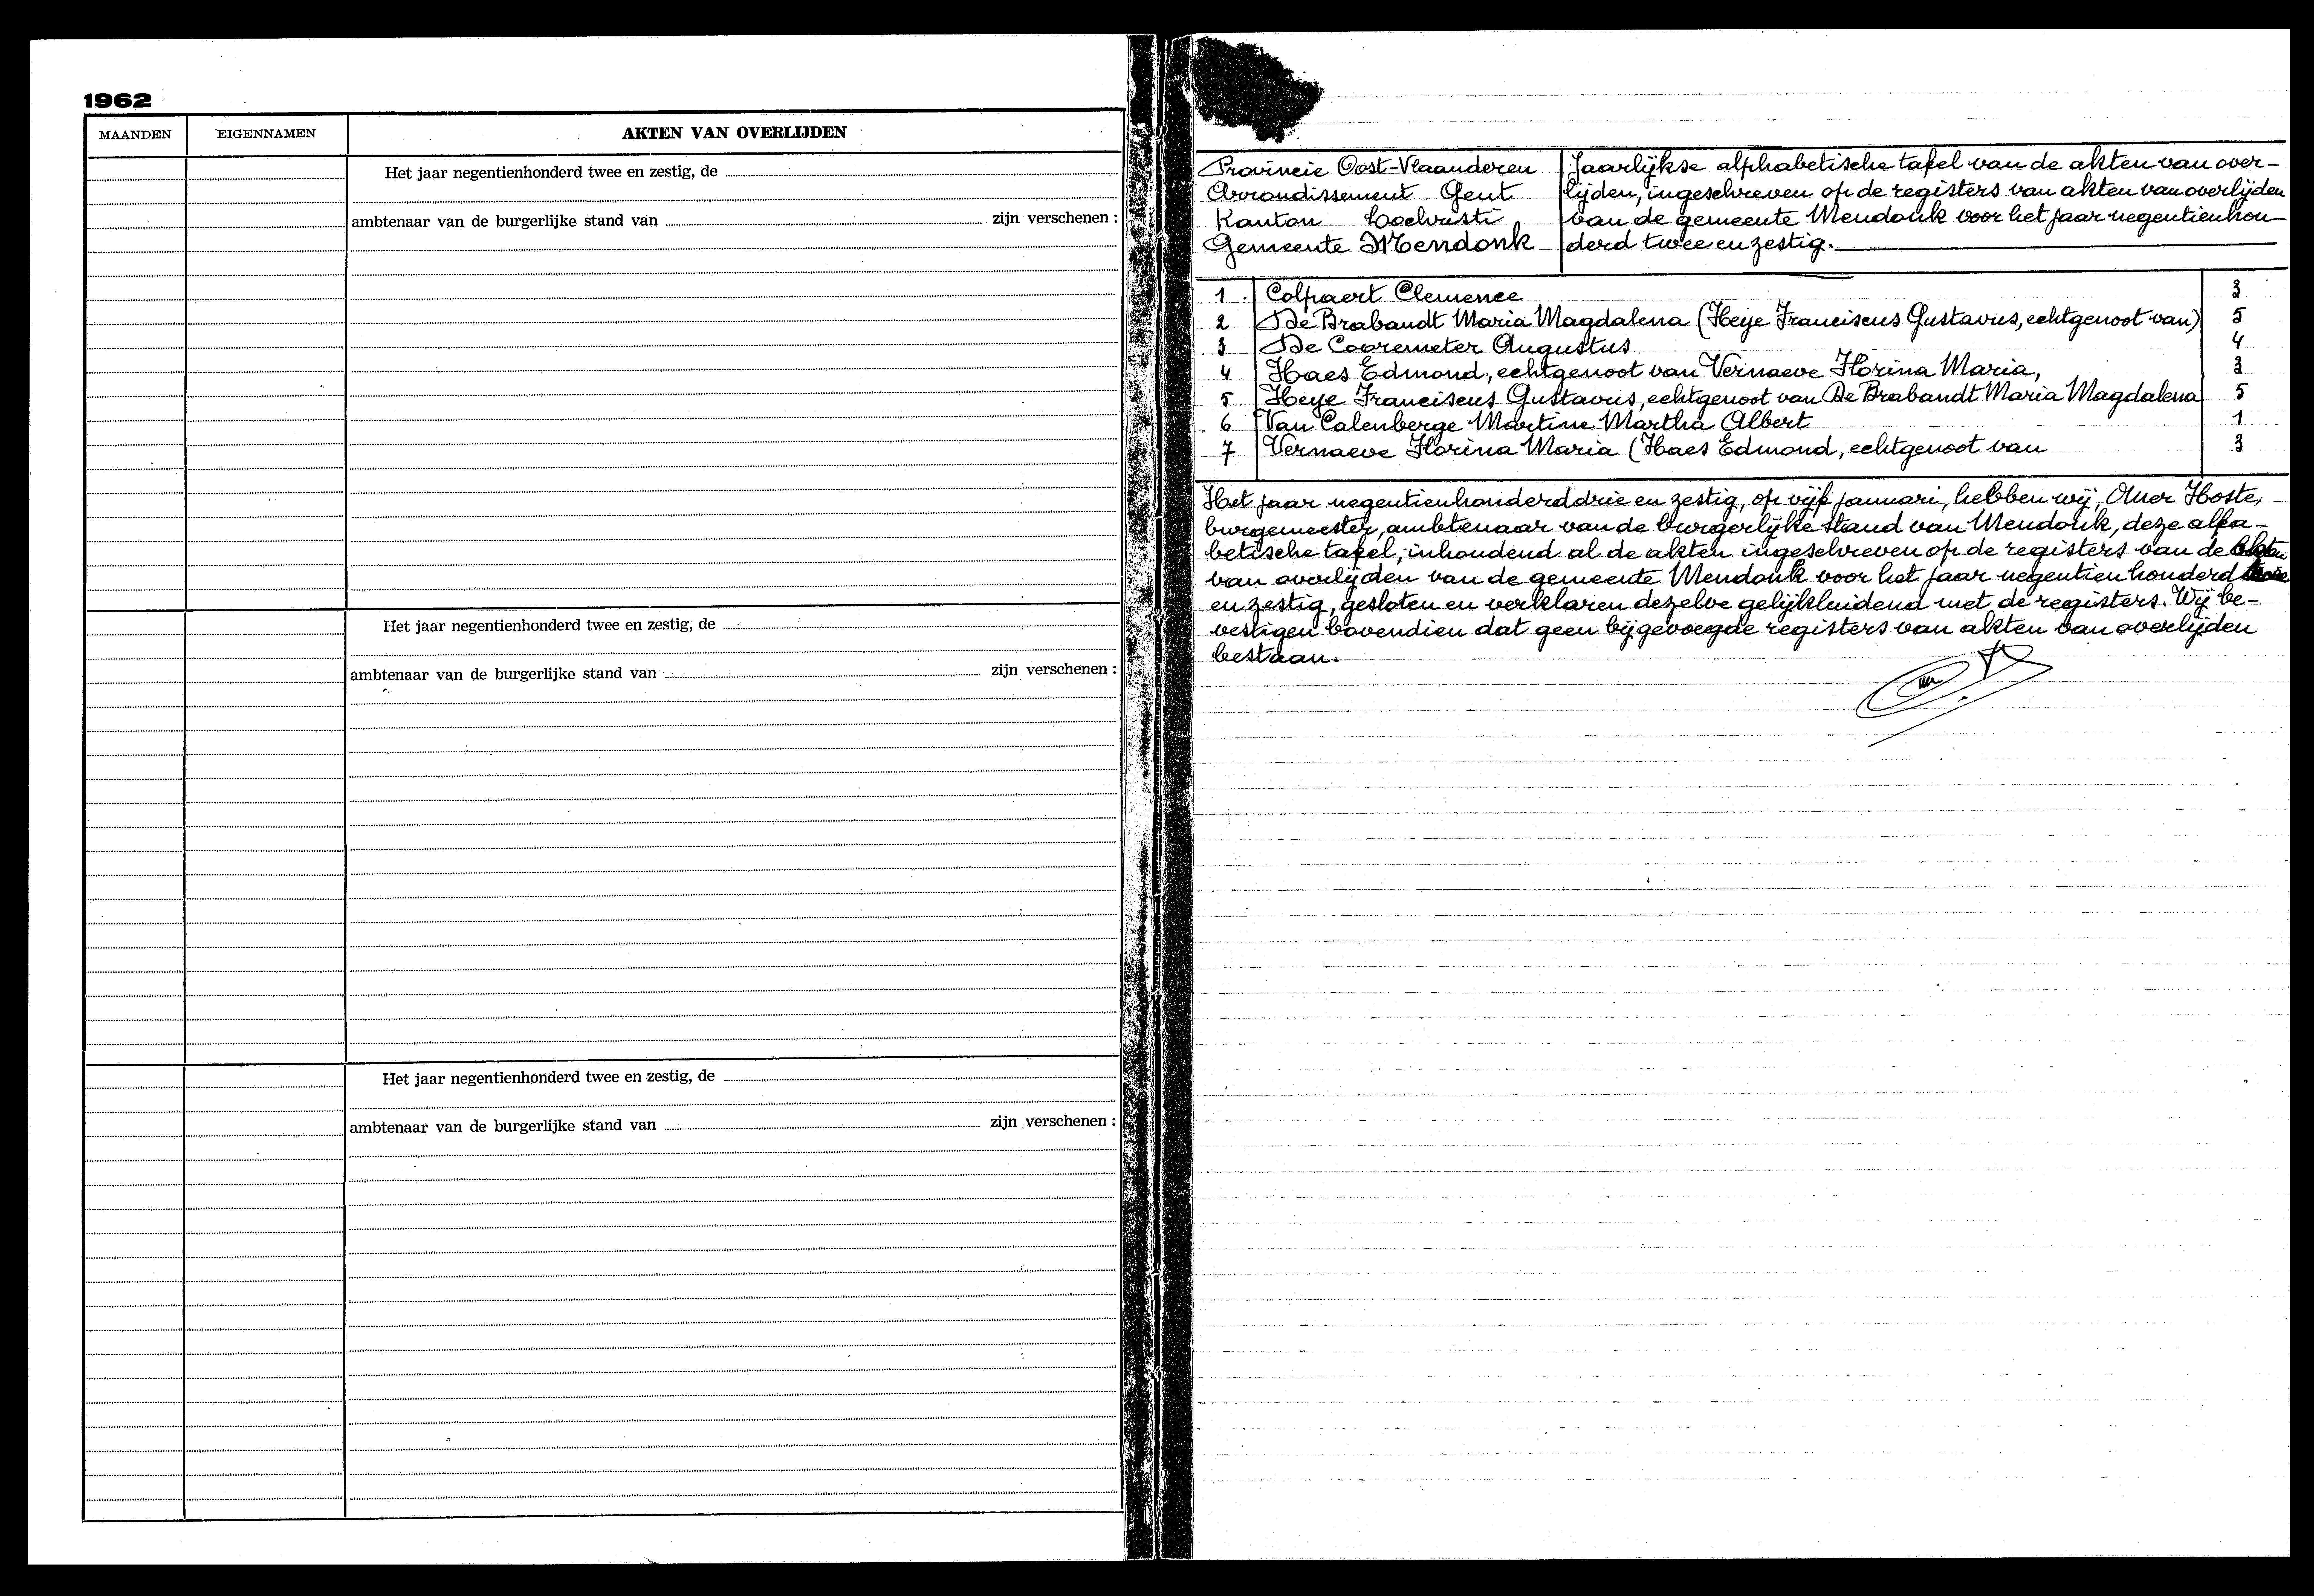 1962
MAANDEN EIGENNAMEN AKTEN VAN OVERLIJDEN
Het jaar negentienhonderd twee en zestig, de
ambtenaar van de burgerlijke stand van zijn verschenen :
Het jaar negentienhonderd twee en zestig, de
ambtenaar van de burgerlijke stand van zijn verschenen :
Het jaar negentienhonderd twee en zestig, de
ambtenaar van de burgerlijke stand van zijn verschenen :
Provincie Oost-Vlaanderen
Arrondissement Gent
Kanton Lochristi
Gemeente Mendonk
Jaarlijkse alphabetische tafel van de akten van over-
lijden, ingeschreven op de registers van akten van overlijden
van de gemeente Mendonk voor het jaar negentienhon-
derd twee en zestig.
1 Colpaert Clemence 3
2 De Brabandt Maria Magdalena (Heye Franciscus Gustavus, echtgenoot van) 5
3 De Cooremeter Augustus 4
4 Haes Edmond, echtgenoot van Vernaeve Florina Maria, 3
5 Heye Franciscus Gustavus, echtgenoot van De Brabandt Maria Magdalena 5
6 Van Calenberge Martine Martha Albert 1
7 Vernaeve Florina Maria (Haes Edmond, echtgenoot van 3
Het jaar negentienhonderd drie en zestig, op vijf januari, hebben wij, Omer Hoste,
burgemeester, ambtenaar van de burgerlijke stand van Mendonk, deze alfa-
betische tafel, inhoudend al de akten ingeschreven op de registers van de akten
van overlijden van de gemeente Mendonk voor het jaar negentien honderd twee
en zestig, gesloten en verklaren dezelve gelijkluidend met de registers. Wij be-
vestigen bovendien dat geen bijgevoegde registers van akten van overlijden
bestaan.